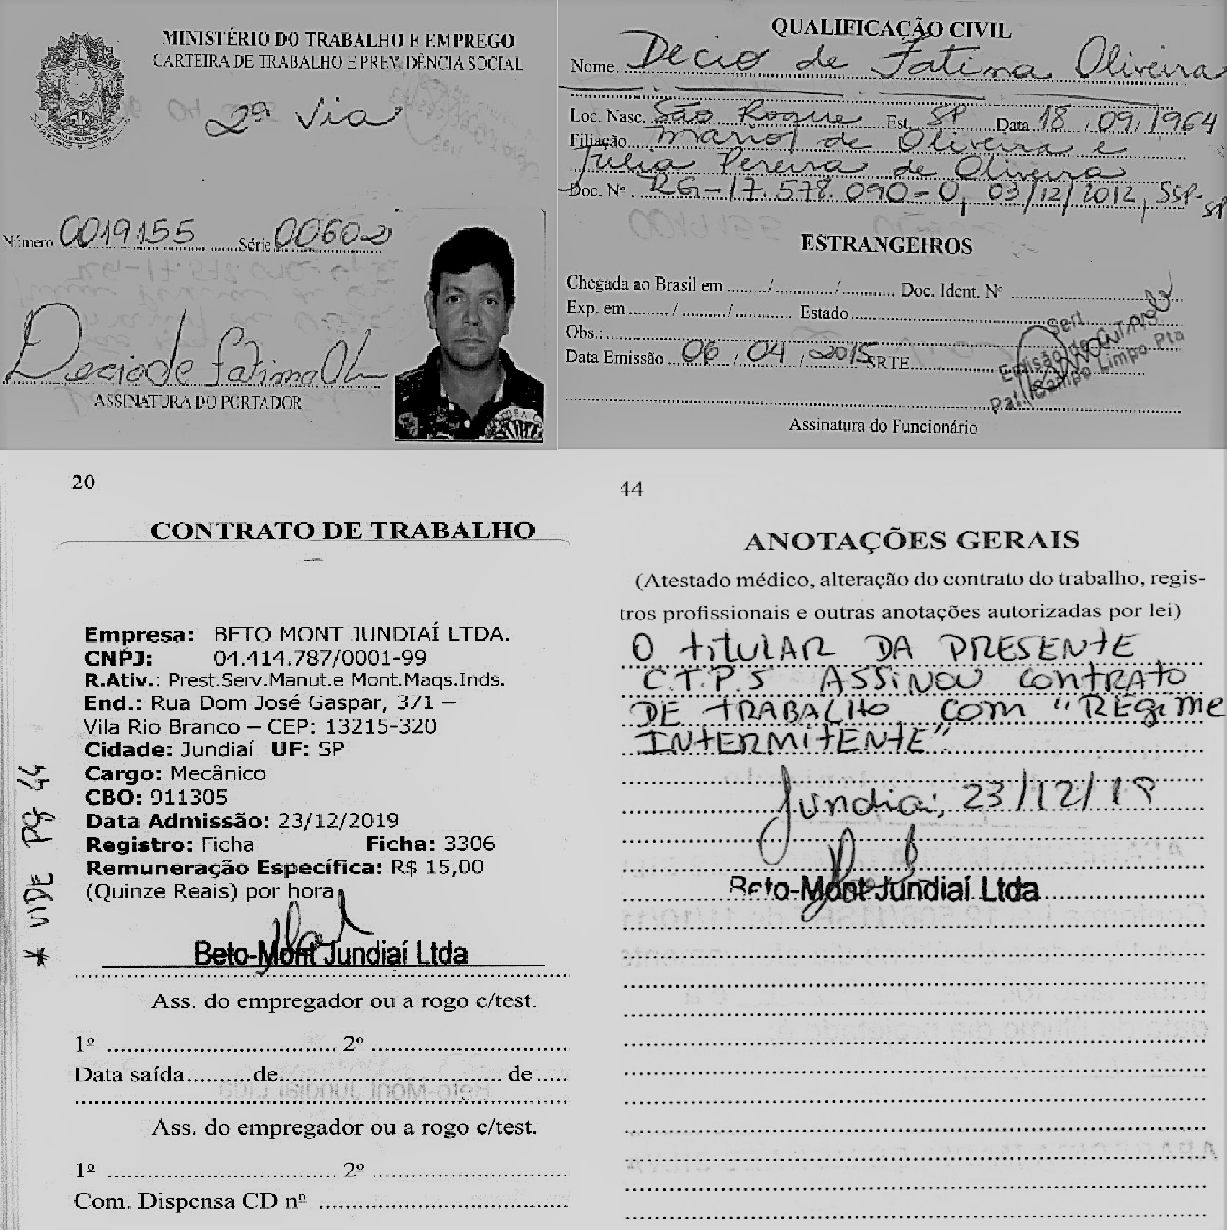 MINISTÉRIO DO TRABALHO E EMPREGO
CARTEIRA DE TRABALHO E PREVIDÊNCIA SOCIAL
2ª via
Número 0019155 Série 00602
Decio de Fatima Ol
ASSINATURA DO PORTADOR
QUALIFICAÇÃO CIVIL
Nome. Decio de Fatima Oliveira
Loc. Nasc. São Roque Est. SP Data 18.09.1964
Filiação Mario de Oliveira e
Julia Pereira de Oliveira
Doc. Nº RG-17.578.090-0, 03/12/2012, SSP-SP
ESTRANGEIROS
Chegada ao Brasil em ......../............/............ Doc. Ident. Nº
Exp. em ........./........./............ Estado
Obs.:
Data Emissão 06.04.2015 SRTE
Sert
Emissão de
Pat/Campo Limpo Pta
Assinatura do Funcionário
20
CONTRATO DE TRABALHO
Empresa: BETO MONT JUNDIAÍ LTDA.
CNPJ: 04.414.787/0001-99
R.Ativ.: Prest.Serv.Manut.e Mont.Maqs.Inds.
End.: Rua Dom José Gaspar, 371 –
Vila Rio Branco – CEP: 13215-320
Cidade: Jundiaí UF: SP
Cargo: Mecânico
CBO: 911305
Data Admissão: 23/12/2019
Registro: Ficha Ficha: 3306
Remuneração Específica: R$ 15,00
(Quinze Reais) por hora
* VIDE PG 44
Beto-Mont Jundiaí Ltda
Ass. do empregador ou a rogo c/test.
1º ................................... 2º ...................................
Data saída..........de................................... de......
Ass. do empregador ou a rogo c/test.
1º ................................... 2º ...................................
Com. Dispensa CD nº ...................................
44
ANOTAÇÕES GERAIS
(Atestado médico, alteração do contrato do trabalho, regis-
tros profissionais e outras anotações autorizadas por lei)
O titULAR DA PRESENTE
C.T.P.S ASSINOU CONTRATO
DE TRABALHO COM "REGIME
INTERMITENTE"
Jundiaí, 23/12/19
Beto-Mont Jundiaí Ltda